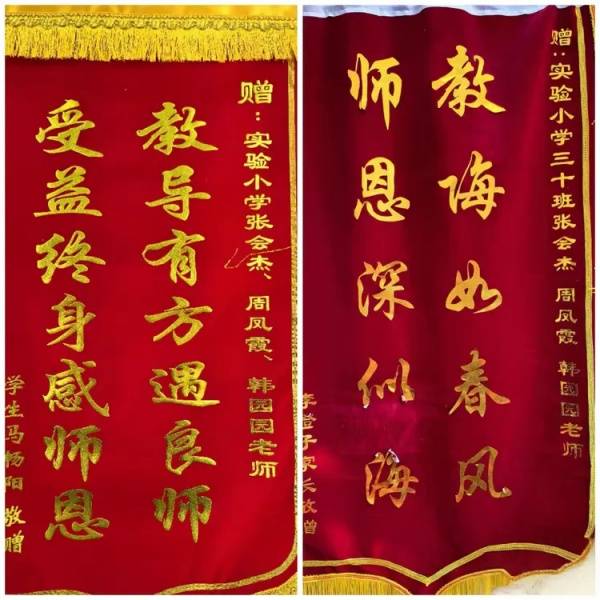 赠：实验小学张会杰、周凤霞、韩园园老师
教导有方遇良师
受益终身感师恩
学生马杨阳 敬赠
赠：实验小学三十班张会杰 周凤霞 韩园园老师
教诲如春风
师恩深似海
家长敬赠